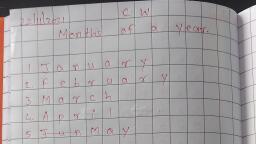 22/11/2021 C W
Months of a year.
1 January
2 February
3 March
4 April
5 JunMay